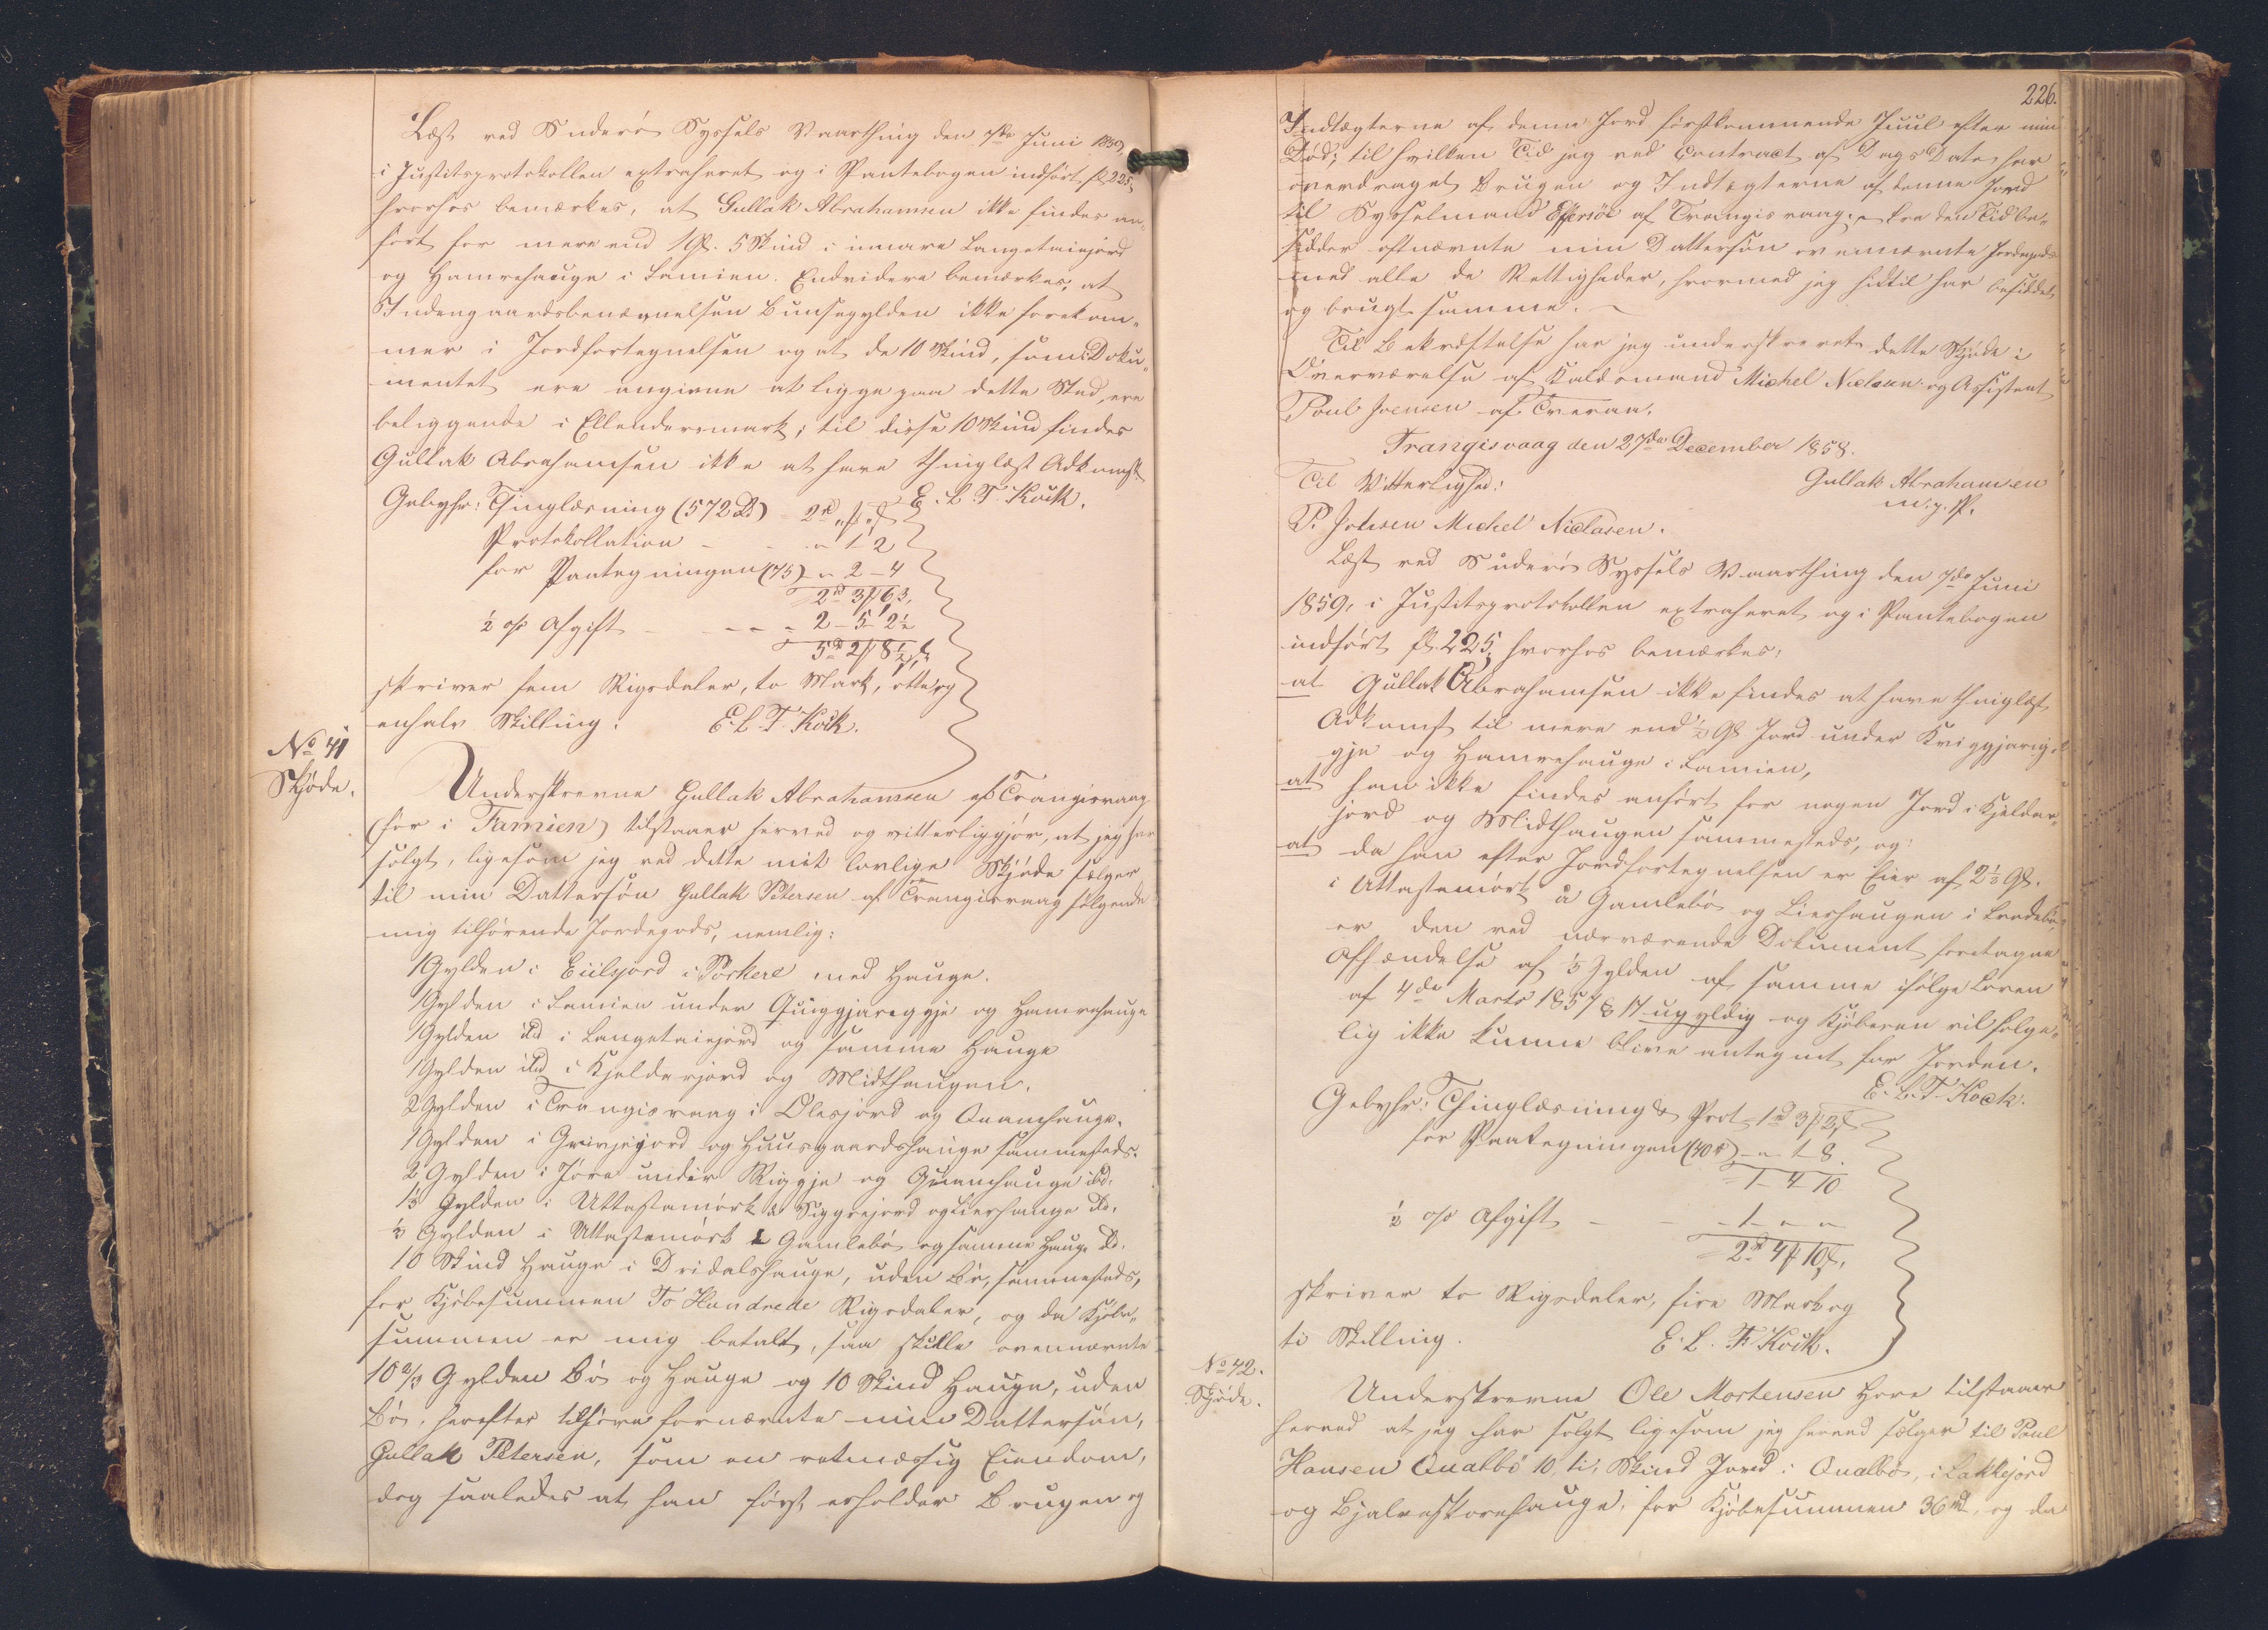 Læst ved Suderø Syssels Vaarthing den 7de Juni 1859,
i Justitsprotokollen extraheret og i Pantebogen indført fl. 225,
hvorhos bemærkes, at Gullak Abrahamsen ikke findes an-
ført for mere end 1 Gl. 5 Skind i innare Langeteiejord
og Hamrehauge i Famien. Endvidere bemærkes, at
Indengaardsbenævnelsen Bunsegylden ikke forekom-
mer i Jordfortegnelsen og at de 10 Skind, som i Doku-
mentet ere angivne at ligge paa dette Sted, ere
beliggende i Ellendersmark; til disse 10 Skind findes
Gullak Abrahamsen ikke at have thinglæst Adkomst
E. L. T. Kock.
Gebyhr: Thinglæsning (572 Rd) 2rd " ſ "
Protokollation - - " 1 - 2
for Paategningen (75) - " 2 - 4
2rd 3 ſ 6 3.
½ o/o Afgift - - - 2 - 5 - 2½
5rd 2 ſ 8½
skriver fem Rigsdaler, to Mark, otte og
enhalv Skilling. E. L. T. Kock.
No 41
Skjøde.
Underskrevne Gullak Abrahamsen af Trangisvaag
(før i Famien) tilstaaer herved og vitterliggjør, at jeg har
solgt, ligesom jeg ved dette mit lovlige Skjøde sælger
til min Dattersøn Gullak Petersen af Trangisvaag følgende
mig tilhørende Jordegods, nemlig:
1 Gylden i Eiilsjord i Porkere med Hauge.
1 Gylden i Famien under Quiggjareggje og Hamrehauge
1 Gylden ibd i Langeteiejord og samme Hauge
1 Gylden ibd i Kjelderjord og Midthaugen.
2 Gylden i Trangisvaag i Olesjord og Quamhauge.
1 Gylden i Grivjejord og Huusgaardshauge sammesteds.
2 Gylden i Jøra under Riggje og Quamhauge ibd.
1⅓ Gylden i Uttastamørk à Siggrejord og Lierhauge ibd.
⅓ Gylden i Uttastamørk à Gamlebø og samme Hauge ibd.
10 Skind Hauge i Dridalshauge, uden Bø, sammesteds,
for Kjøbesummen To Hundrede Rigsdaler, og da Kjøbe-
summen er mig betalt, saa skulle ovennævnte
10⅔ Gylden Bø og Hauge og 10 Skind Hauge, uden
Bø, herefter tilhøre fornævnte min Dattersøn,
Gullak Petersen, som en retmæssig Eiendom,
dog saaledes at han først erholder Brugen og
226.
Indtægterne af denne Jord førstkommende Juul efter min
Død; til hvilken Tid jeg ved Contract af Dags Dato har
overdraget Brugen og Indtægterne af denne Jord
til Sysselmand Effersøe af Trangisvaag. fra den Tid be-
sidder oftnævnte min Dattersøn ovennævnte Jordegods
med alle de Rettigheder, hvormed jeg hidtil har besiddet
og brugt samme.
Til Bekræftelse har jeg underskrevet dette Skjøde i
Overværelse af Kaldsmand Michel Niclasen og Assistent
Poul Joensen af Tveraa.
Trangisvaag den 27de December 1858.
Til Vitterlighed: Gullak Abrahamsen
P. Johnsen Michel Niclasen. m. p. P.
Læst ved Suderø Syssels Vaarthing den 7de Juni
1859, i Justitsprotokollen extraheret og i Pantebogen
indført fl. 225, hvorhos bemærkes,
at Gullak Abrahamsen ikke findes at have thinglæst
Adkomst til mere end ½ Gl Jord under Kviggjarig-
gje og Hamrehauge i Famien,
at han ikke findes anført for nogen Jord i Kjelder-
jord og Midthaugen sammesteds, og:
at da han efter Jordfortegnelsen er Eier af 2⅓ Gl.
i Uttastamørk à Gamlebø og Lierhaugen i
er den ved nærværende Dokument foretagne
Afhændelse af ⅓ Gylden af samme ifølge Loven
af 4de Marts 1857 § 17 ugyldig og Kjøberen vil følge-
lig ikke kunne blive antegnet for Jorden.
E. L. T. Kock.
Gebyhr: Thinglæsning & Prot. 1rd 3 ſ 2
for Paategningen (40 ) - " 1 - 8.
1 - 4 - 10
½ o/o Afgift - - - 1 - " - "
2rd 4 ſ 10.
skriver to Rigsdaler, fire Mark og
ti Skilling. E. L. T. Kock.
No 42.
Skjøde.
Underskrevne Ole Mortensen Hove tilstaaer
herved at jeg har solgt ligesom jeg herved sælger til Poul
Hansen Qualbø 10, ti, Skind Jord i Qualbø, i Lakkejord
og Bjalveskorehauge, for Kjøbesummen 36rd, og da